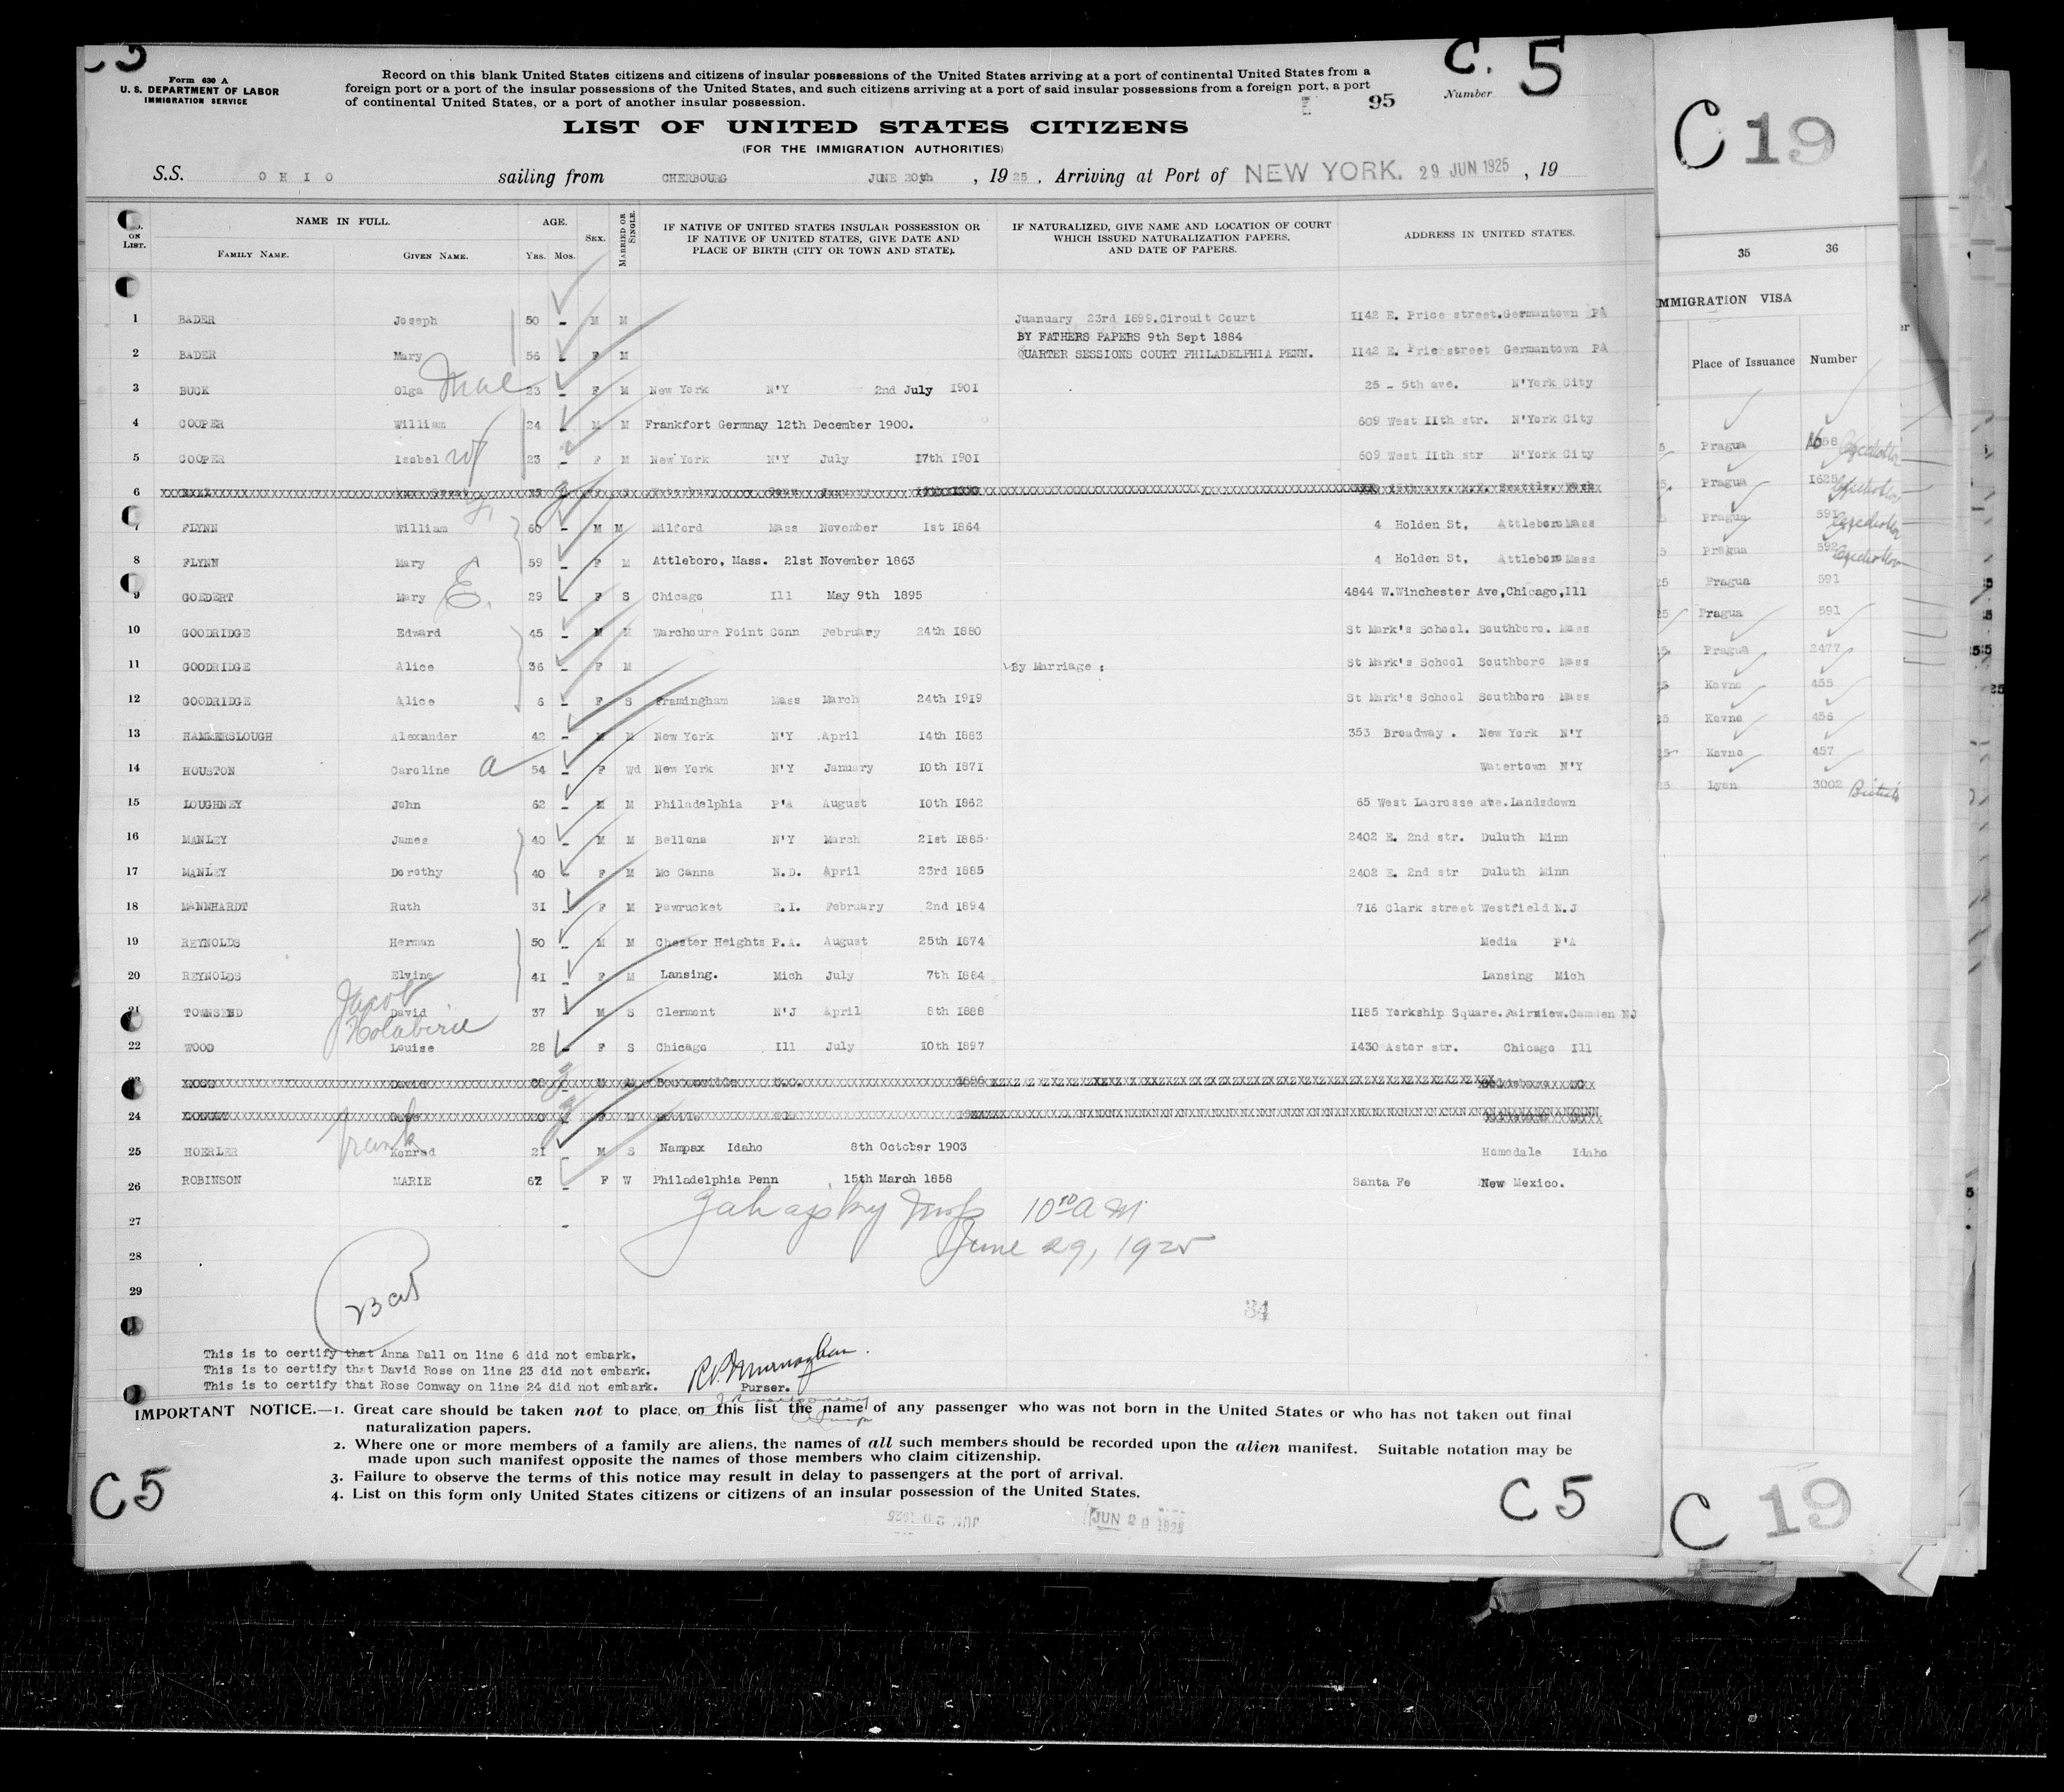 C 5
Form 630 A
U. S. DEPARTMENT OF LABOR
IMMIGRATION SERVICE
Record on this blank United States citizens and citizens of insular possessions of the United States arriving at a port of continental United States from a
foreign port or a port of the insular possessions of the United States, and such citizens arriving at a port of said insular possessions from a foreign port, a port
of continental United States, or a port of another insular possession.
C. 5
Number
95
LIST OF UNITED STATES CITIZENS
(FOR THE IMMIGRATION AUTHORITIES)
S.S. OHIO sailing from CHERBOURG JUNE 20th , 1925 , Arriving at Port of NEW YORK. 29 JUN 1925 , 19
ON LIST. NAME IN FULL. FAMILY NAME. GIVEN NAME. AGE. YRS. MOS. SEX. MARRIED OR SINGLE. IF NATIVE OF UNITED STATES INSULAR POSSESSION OR IF NATIVE OF UNITED STATES, GIVE DATE AND PLACE OF BIRTH (CITY OR TOWN AND STATE). IF NATURALIZED, GIVE NAME AND LOCATION OF COURT WHICH ISSUED NATURALIZATION PAPERS, AND DATE OF PAPERS. ADDRESS IN UNITED STATES.
1 BADER Joseph 50 - M M Juanuary 23rd 1899.Circuit Court 1142 E. Price street.Germantown PA
BY FATHERS PAPERS 9th Sept 1884
2 BADER Mary 56 - F M QUARTER SESSIONS COURT PHILADELPHIA PENN. 1142 E. Price street Germantown PA
3 BUCK Olga Mae 23 - F M New York N'Y 2nd July 1901 25 - 5th ave. N'York City
4 COOPER William 24 - M M Frankfort Germnay 12th December 1900. 609 West 11th str. N'York City
5 COOPER Isobel W 23 - F M New York N'Y July 17th 1901 609 West 11th str N'York City
6
7 FLYNN William F. 60 - M M Milford Mass November 1st 1864 4 Holden St, Attleboro Mass
8 FLYNN Mary 59 - F M Attleboro, Mass. 21st November 1863 4 Holden St, Attleboro Mass
9 GOEDERT Mary E. 29 - F S Chicago Ill May 9th 1895 4844 W.Winchester Ave,Chicago,Ill
10 GOODRIDGE Edward 45 - M M Warehoure Point Conn February 24th 1880 St Mark's School. Southboro. Mass
11 GOODRIDGE Alice 36 - F M By Marriage : St Mark's School Southboro Mass
12 GOODRIDGE Alice 6 - F S Framingham Mass March 24th 1919 St Mark's School Southboro Mass
13 HAMMERSLOUGH Alexander 42 - M M New York N'Y .April 14th 1883 353 Broadway . New York N'Y
14 HOUSTON Caroline a 54 - F Wd New York N'Y January 10th 1871 Watertown N'Y
15 LOUGHNEY John 62 - M M Philadelphia P'A August 10th 1862 65 West Lacrosse ave.Landsdown
16 MANLEY James 40 - M M Bellona N'Y March 21st 1885 2402 E. 2nd str. Duluth Minn
17 MANLEY Dorothy 40 - F M Mc Canna N.D. April 23rd 1885 2402 E. 2nd str Duluth Minn
18 MANNHARDT Ruth 31 - F M Pawrucket R.I. February 2nd 1894 716 Clark street Westfield N.J
19 REYNOLDS Herman 50 - M M Chester Heights P.A. August 25th 1874 Media P'A
20 REYNOLDS Elvine 41 - F M Lansing. Mich July 7th 1884 Lansing Mich
Jacob
21 TOWNSEND David 37 - M S Clermont N'J April 8th 1888 1185 Yorkship Square.Fairview.Camden NJ
22 WOOD Louise 28 - F S Chicago Ill July 10th 1897 1430 Astor str. Chicago Ill
24
Frank
25 HOERLER Konrad 21 M S Nampax Idaho 8th October 1903 Homedale Idaho
26 ROBINSON MARIE 67 - F W Philadelphia Penn 15th March 1858 Santa Fe New Mexico.
27 - 10 A M
28 June 29, 1925
29
34
This is to certify that Anna Dall on line 6 did not embark.
This is to certify that David Rose on line 23 did not embark.
This is to certify that Rose Conway on line 24 did not embark.
Purser.
IMPORTANT NOTICE.—1. Great care should be taken not to place on this list the name of any passenger who was not born in the United States or who has not taken out final
naturalization papers.
2. Where one or more members of a family are aliens, the names of all such members should be recorded upon the alien manifest. Suitable notation may be
made upon such manifest opposite the names of those members who claim citizenship.
3. Failure to observe the terms of this notice may result in delay to passengers at the port of arrival.
4. List on this form only United States citizens or citizens of an insular possession of the United States.
C 5
C 5
C 19
35 36
IMMIGRATION VISA
Place of Issuance Number
Pragua
Pragua 1625
Pragua 591
Pragua 592
Pragua 591
Pragua 591
Pragua 2477
Kovno 455
Kovno 456
Kovno 457
Lyon 3002 British
C 19